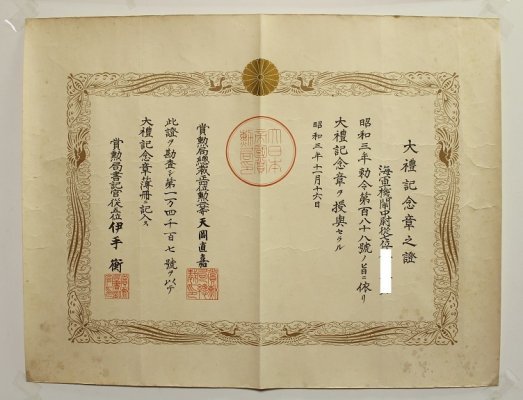 大禮記念章之證
海軍機關中尉從七位
昭和三年勅令第百八十八號ノ旨ニ依リ
大禮記念章ヲ授與セラル
昭和三年十一月十六日
賞勲局總裁正四位勲二等天岡直嘉
此證ヲ勘査シ第一万四千百七號ヲ以テ
大禮記念章ノ簿冊ニ記入ス
賞勲局書記官從六位伊手衡